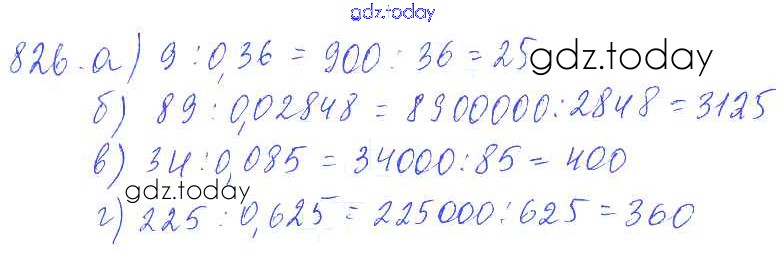 gdz.today
826. а) 9 : 0,36 = 900 : 36 = 25
gdz.today
б) 89 : 0,02848 = 8900000 : 2848 = 3125
в) 34 : 0,085 = 34000 : 85 = 400
gdz.today
г) 225 : 0,625 = 225000 : 625 = 360